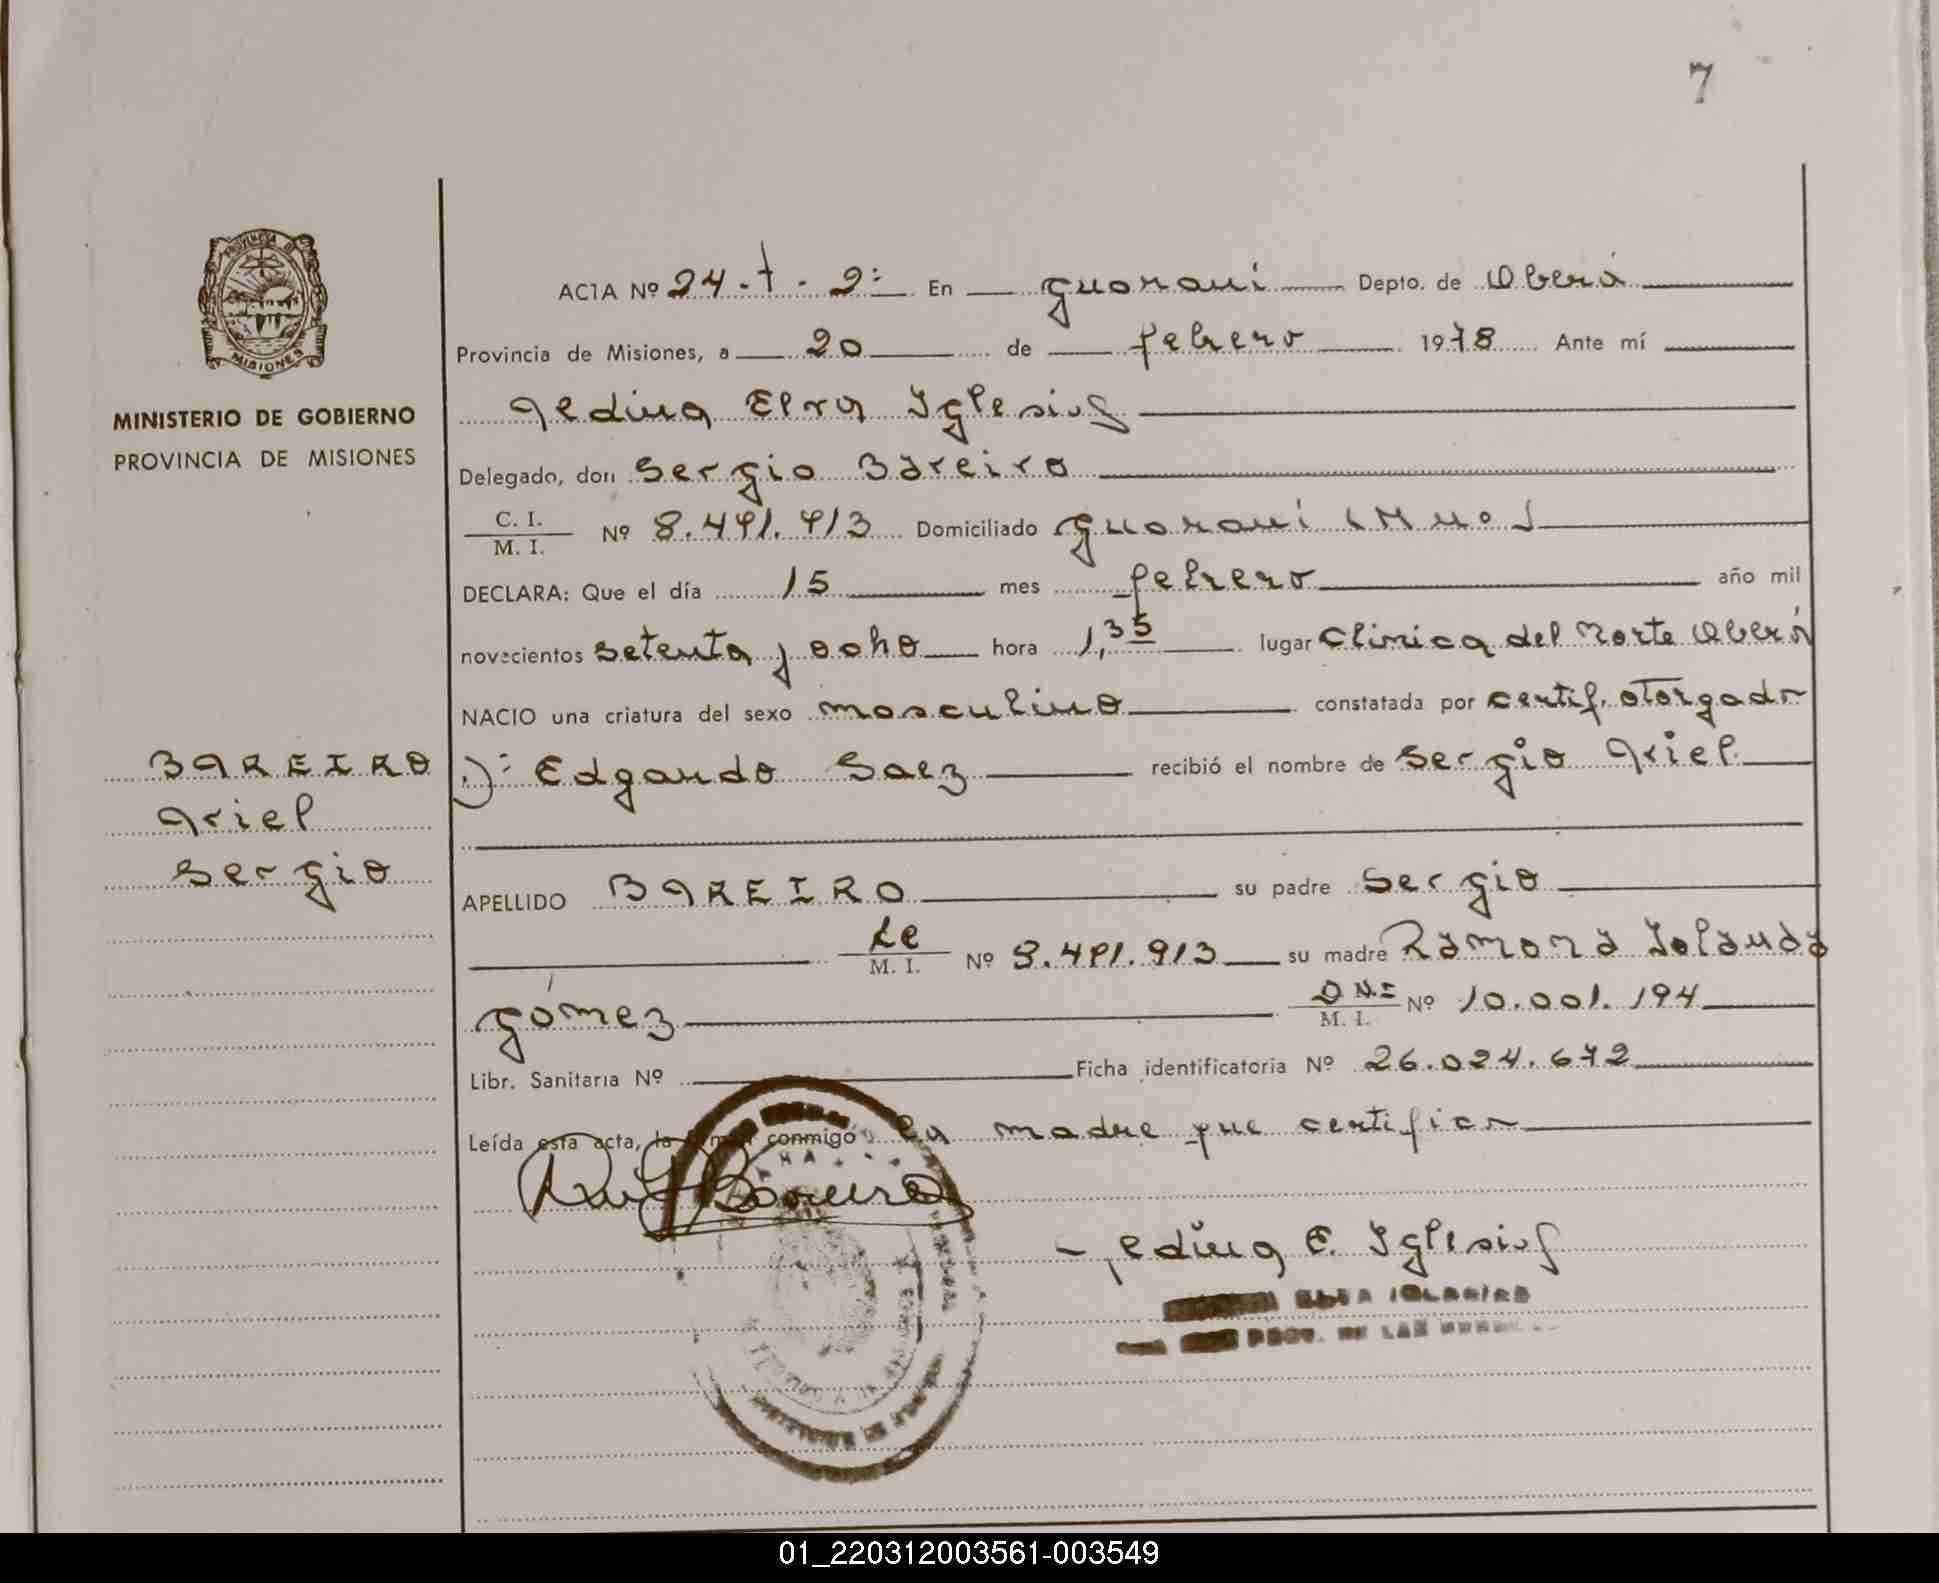 7
ACTA Nº 24 - t - 2º En Guaraní Depto. de Oberá
Provincia de Misiones, a 20 de febrero 1978 Ante mí
Iglesias
MINISTERIO DE GOBIERNO
PROVINCIA DE MISIONES
Delegado, don Sergio Bareiro
C. I.
M. I. Nº 8.491.913 Domiciliado Guaraní (Mnes)
DECLARA: Que el día 15 mes febrero año mil
novecientos setenta y ocho hora 1,35 lugar Clinica del Norte Oberá
NACIO una criatura del sexo masculino constatada por certif. otorgado
BAREIRO
Ariel
Sergio
p: Edgardo Saez recibió el nombre de Sergio Ariel
APELLIDO BAREIRO su padre Sergio
LE
M. I. Nº 8.491.913 su madre Ramona Yolanda
Gómez DNI
M. I. Nº 10.001.194
Libr. Sanitaria Nº Ficha identificatoria Nº 26.024.672
Leída esta acta, la conmigo la madre que certifica
E. Iglesias
01_220312003561-003549